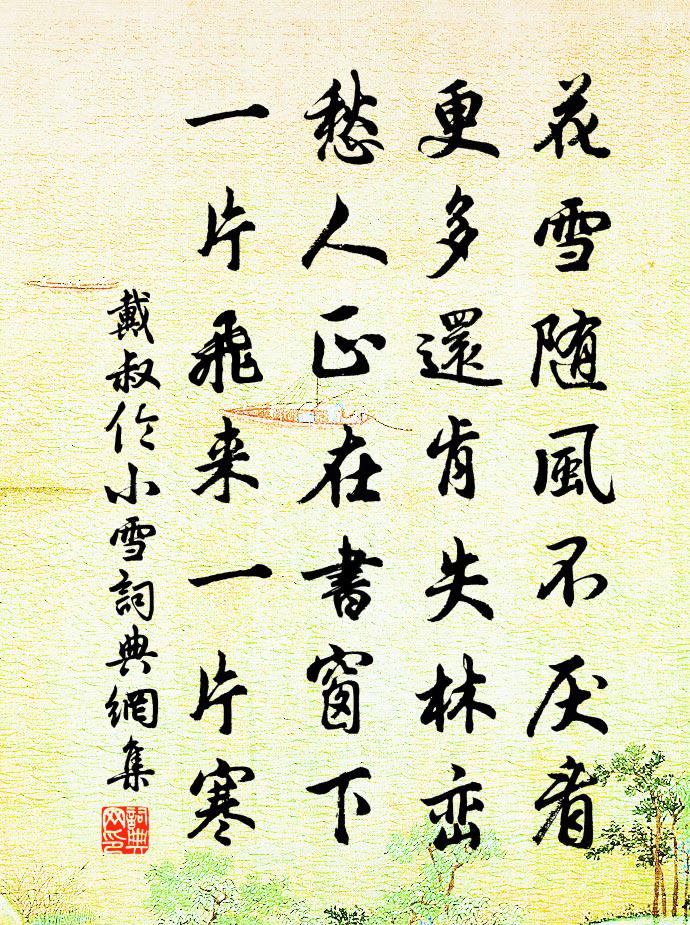 花雪随風不厌看
更多還肯失林峦
愁人正在書窗下
一片飛来一片寒
戴叔伦小雪詞典網集
詞典网印